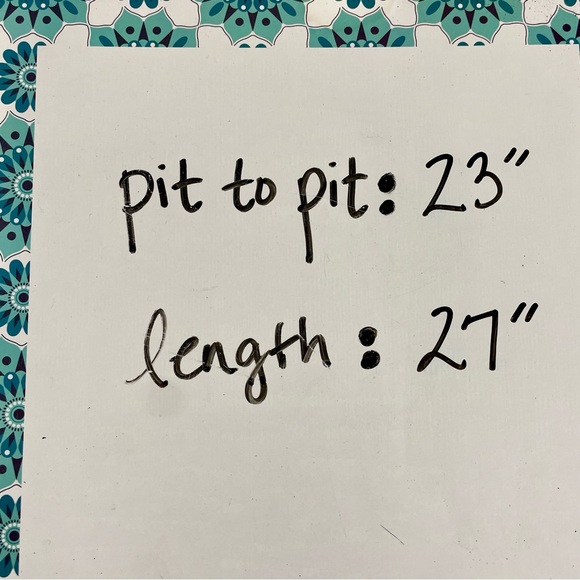 pit to pit: 23"
length: 27"